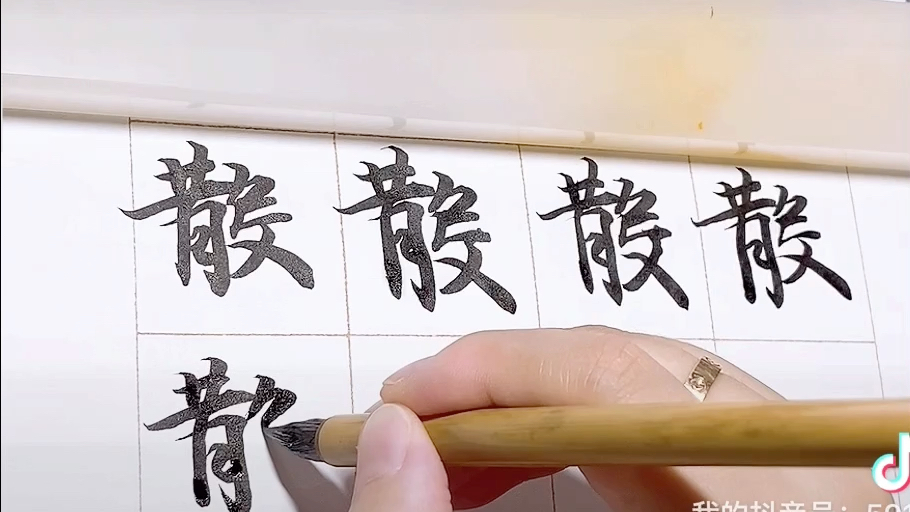 散散散散
我的抖音号：